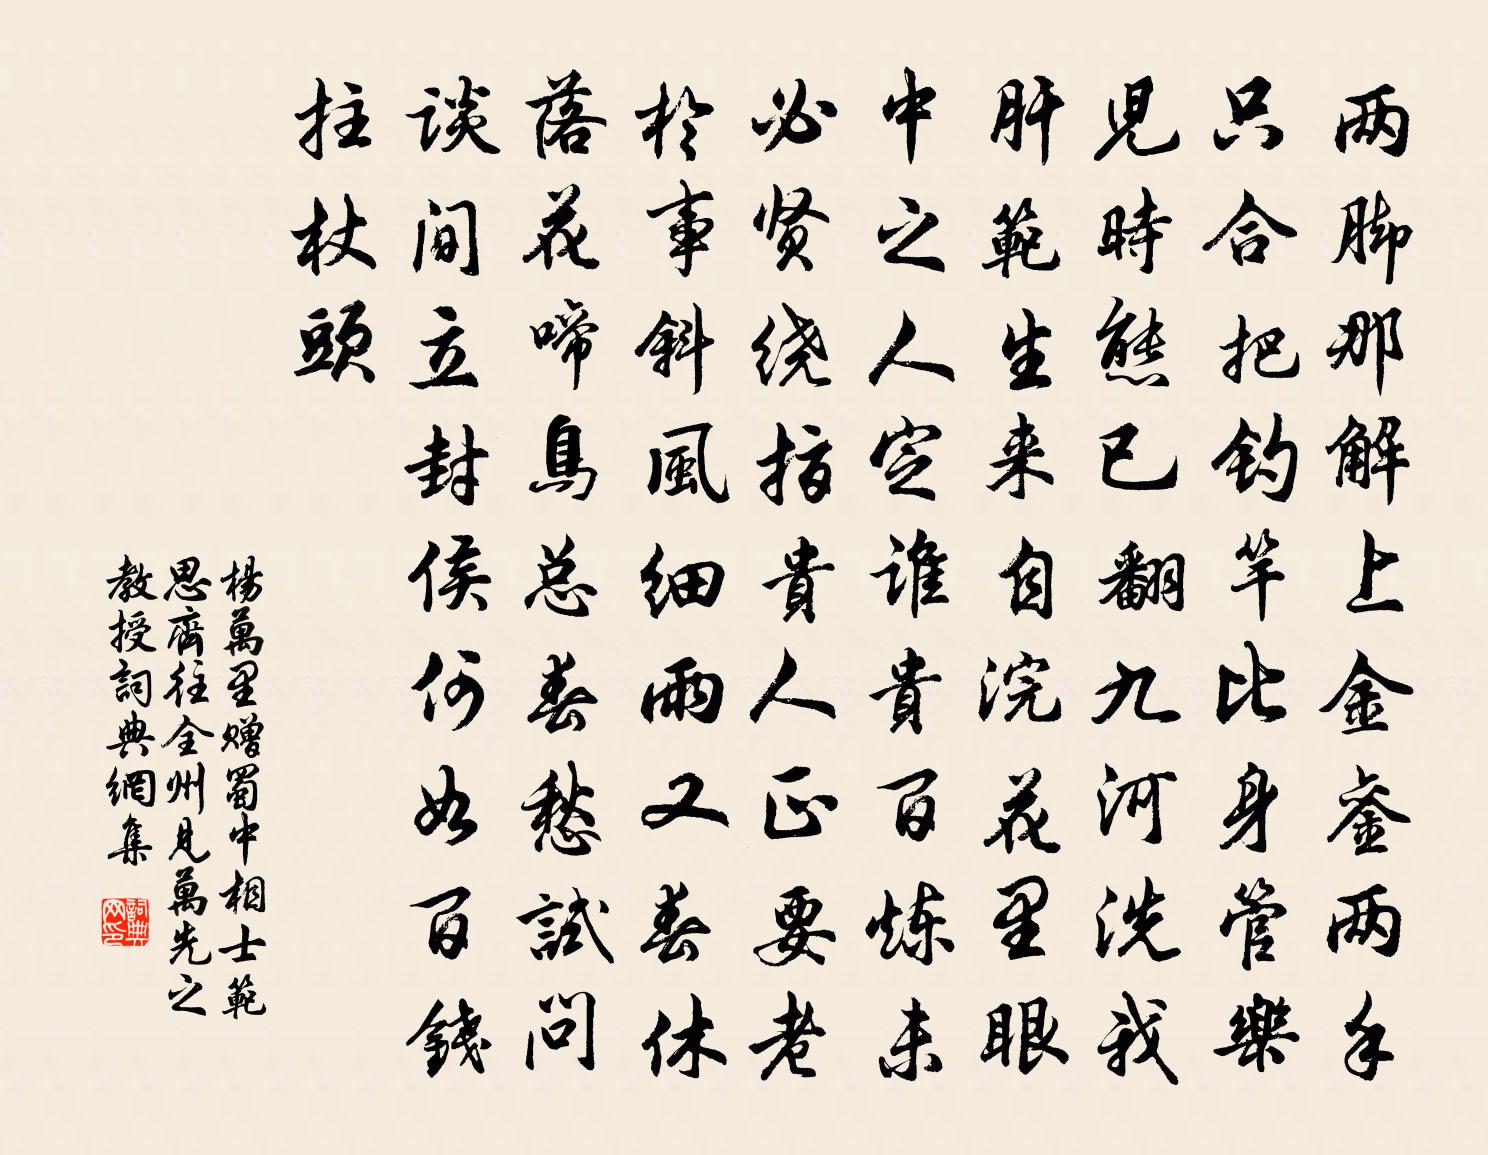 两脚那解上金銮两手
只合把钓竿比身管樂
児時態已翻九河洗我
肝範生来自浣花里眼
中之人定谁貴百炼未
必贤绕指貴人正要老
於事斜風细雨又春休
落花啼鳥总春愁試问
谈间立封侯何如百錢
拄杖頭
楊萬里赠蜀中相士範
思齊往全州見萬先之
教授詞典網集
詞典网印